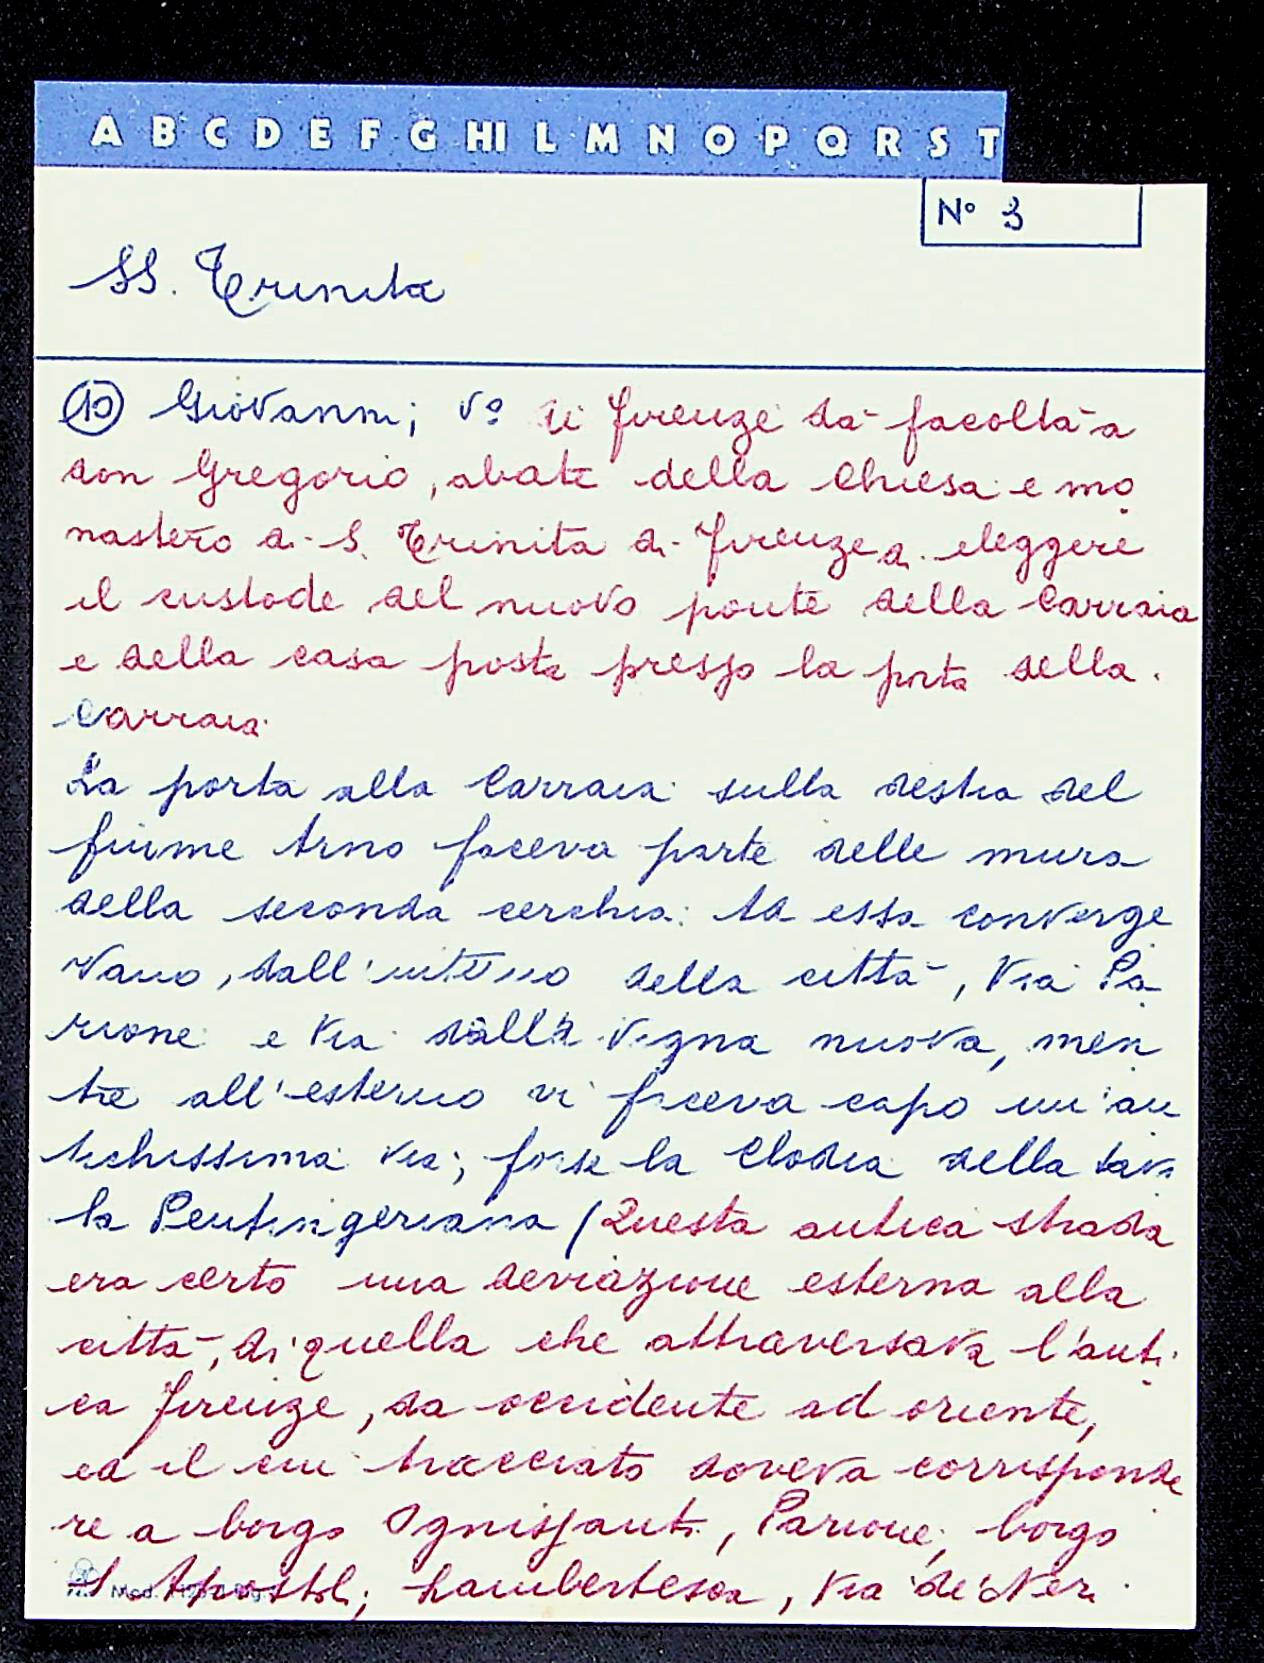 A B C D E F G HI L M N O P Q R S T
N° 3
SS. Trinita
10 Giovanni, v° di Firenze dà facoltà a
don Gregorio, abate della Chiesa e mo
nastero di S. Trinita di Firenze di eleggere
il custode del nuovo ponte della Carraia
e della casa posta presso la porta della
Carraia
La porta alla Carraia sulla destra del
fiume Arno faceva parte delle mura
della seconda cerchia. Ad essa converge
vano, dall'interno della città, Via Pa
rione e Via della Vigna nuova, men
tre all'esterno vi faceva capo un'an
tichissima via, forse la Clodia della tavo
la Peutingeriana (Questa antica strada
era certo una deviazione esterna alla
città, di quella che attraversava l'anti
ca Firenze, da occidente ad oriente,
ed il cui tracciato doveva corrisponde
re a borgo Ognissanti, Parione, borgo
S. Apostoli, Lambertesca, Via de' Neri
Mod.